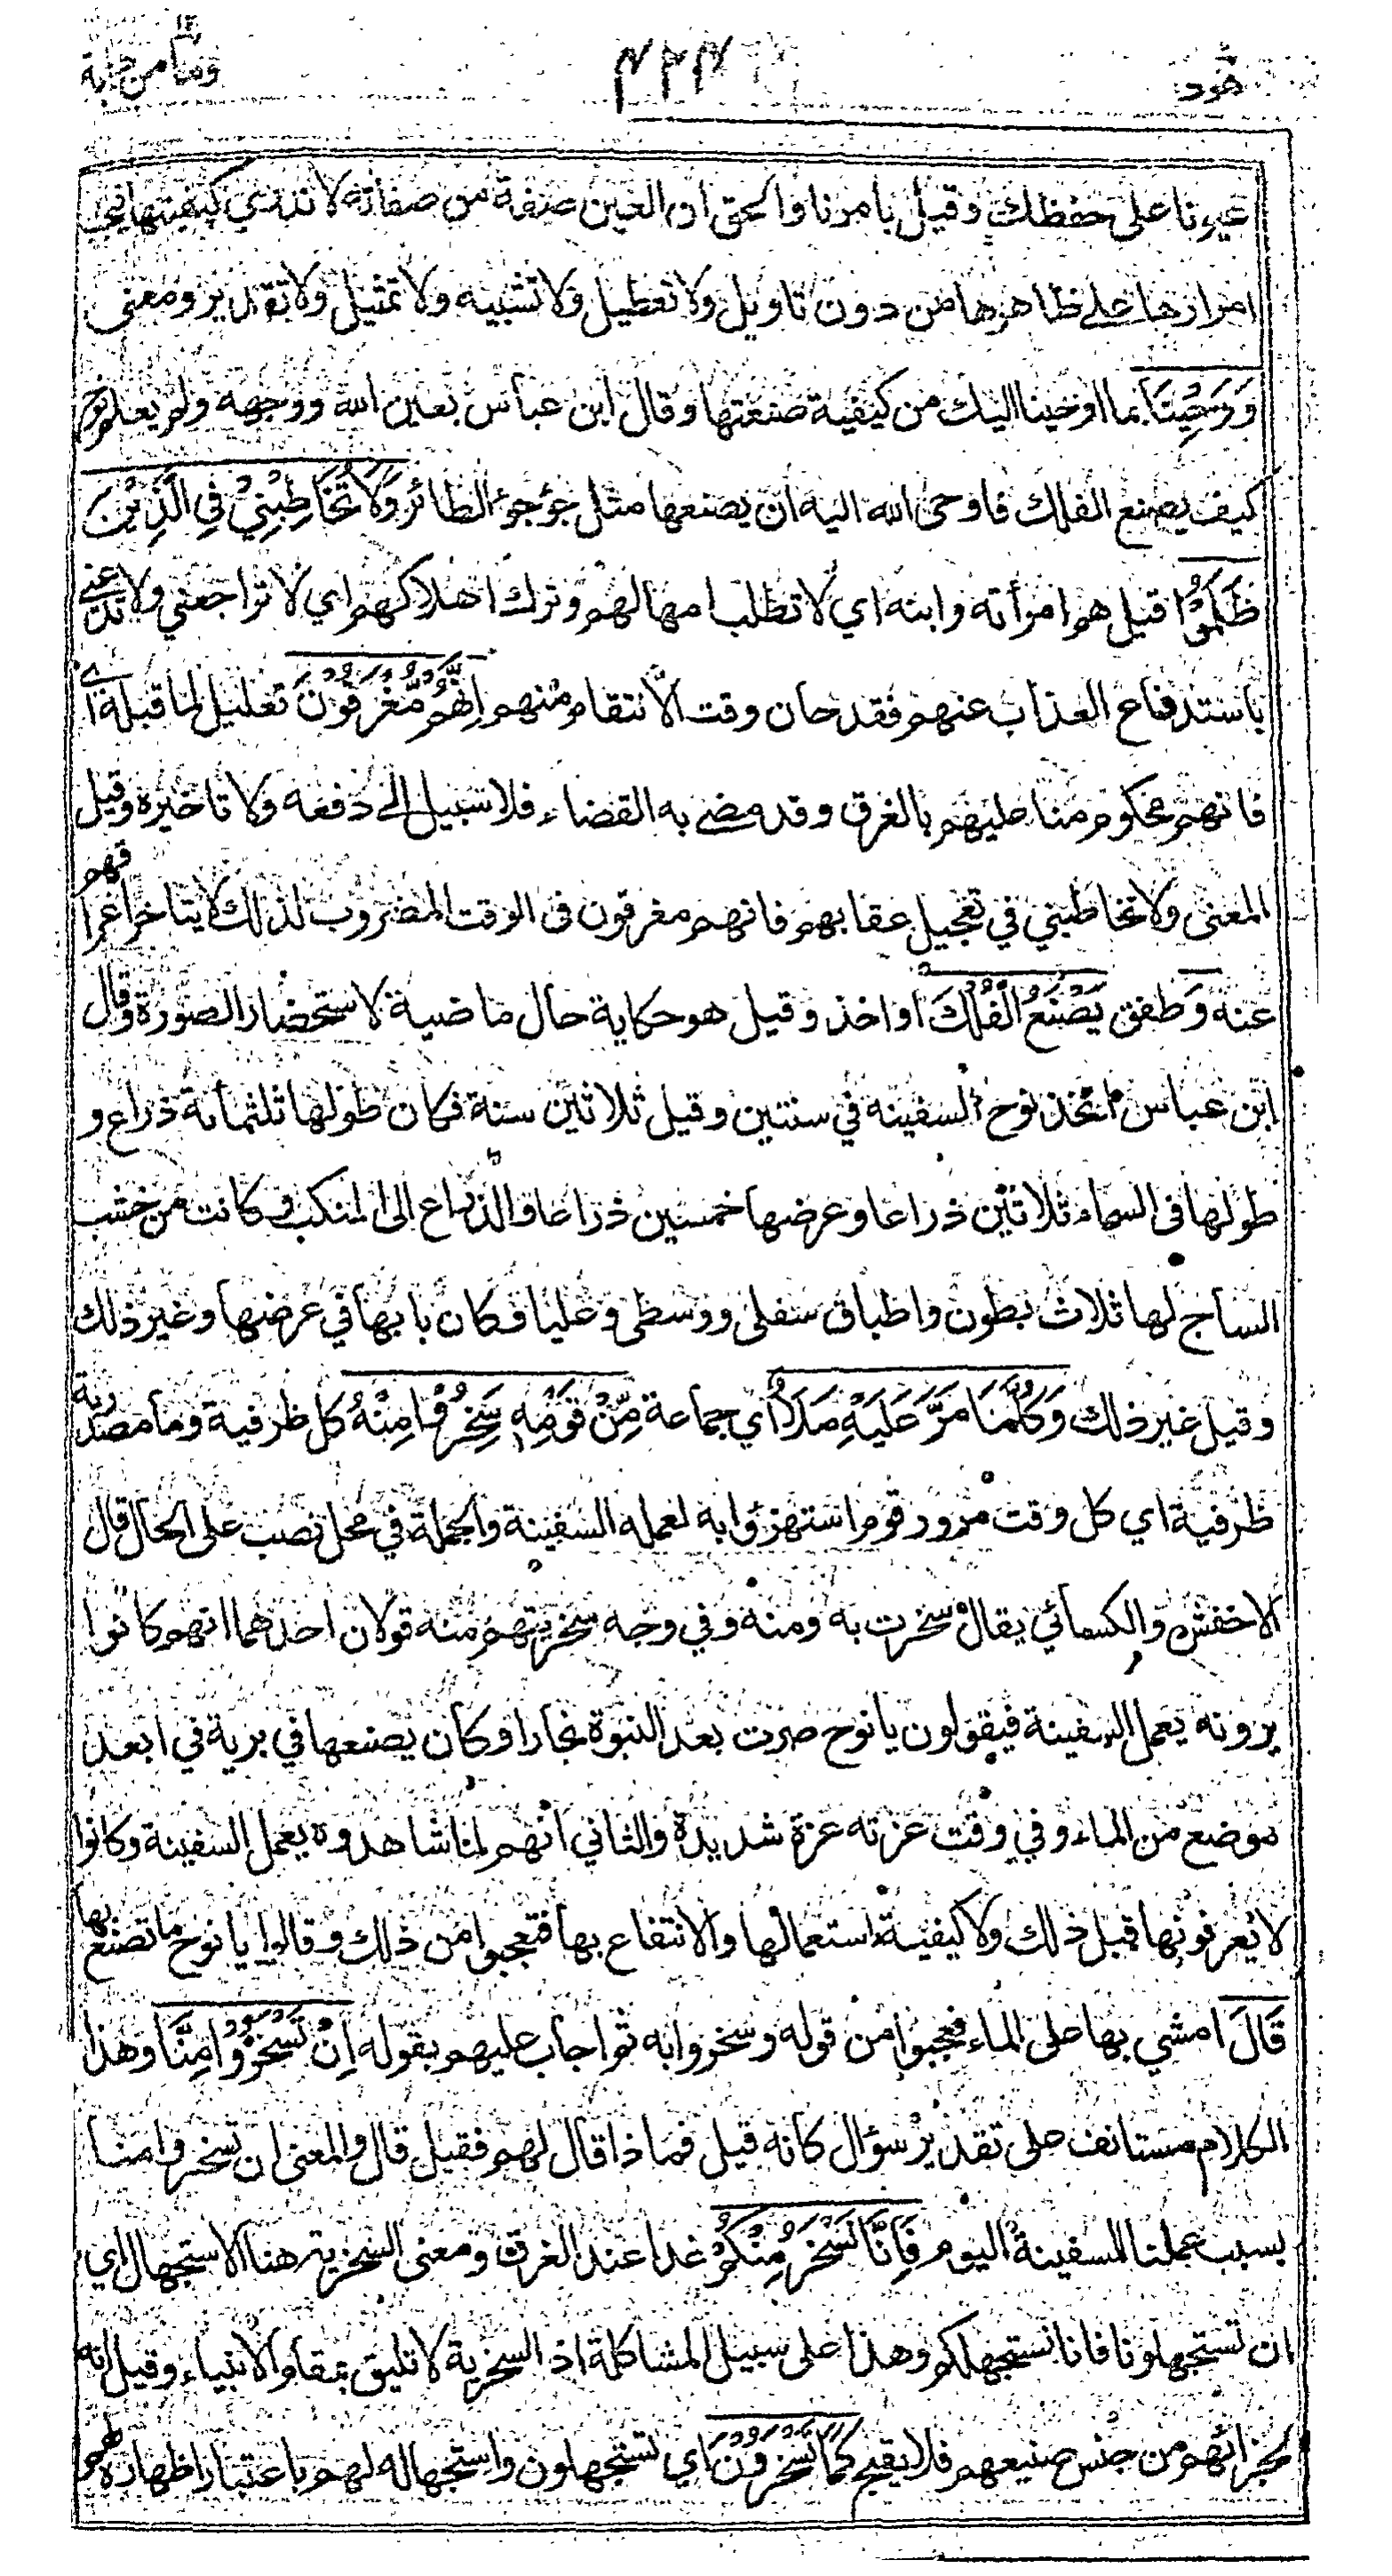 هود
٤٢٣
ومامن دابة
غيرنا على حفظك وقيل بامرنا والحق ان العين صفة من صفاته لا ندري كيفيتها فيجب
امرارها على ظاهرها من دون تاويل ولا تعطيل ولا تشبيه ولا تمثيل ولا تقدير ومعنى
وَوَحْيِنَا بما اوحينا اليك من كيفية صنعتها وقال ابن عباس بعين الله ووجهه ولم يعلم نوح
كيف يصنع الفلك فاوحى الله اليه ان يصنعها مثل جؤجؤ الطائر وَلَا تُخَاطِبْنِيْ فِي الَّذِيْنَ
ظَلَمُوْا قيل هو امرأته وابنه اي لا تطلب امهالهم وترك اهلاكهم اي لا تراجعني ولا تدعني
باستدفاع العذاب عنهم فقد حان وقت الانتقام منهم اِنَّهُمْ مُّغْرَقُوْنَ تعليل لما قبله اي
فانهم محكوم منا عليهم بالغرق وقد مضى به القضاء فلا سبيل الى دفعه ولا تاخيره وقيل
المعنى ولا تخاطبني في تعجيل عقابهم فانهم مغرقون فى الوقت المضروب لذلك لا يتاخر اغراقهم
عنه وَ طفق يَصْنَعُ الْفُلْكَ او اخذ وقيل هو حكاية حال ماضية لاستحضار الصورة وقال
ابن عباس اتخذ نوح السفينه في سنتين وقيل ثلاثين سنة فكان طولها ثلثمأة ذراع و
طولها فى السماء ثلاثين ذراعا وعرضها خمسين ذراعا والذراع الى المنكب وكانت من خشب
الساج لها ثلاث بطون واطباق سفلى ووسطى وعليا وكان بابها في عرضها وغير ذلك
وقيل غير ذلك وَكُلَّمَا مَرَّ عَلَيْهِ مَلَاٌ اي جماعة مِّنْ قَوْمِهٖ سَخِرُوْا مِنْهُ كل ظرفية وما مصدرية
ظرفية اي كل وقت مرور قوم استهزؤا به لعمله السفينة والجملة في محل نصب على الحال قال
الاخفش والكسائي يقال سخرت به ومنه وفي وجه سخريتهم منه قولان احدهما انهم كانوا
يرونه يعمل السفينة فيقولون يا نوح صرت بعد النبوة نجارا وكان يصنعها في برية في ابعد
موضع من الماء وفي وقت عزته عزة شديدة والثاني انهم لما شاهدوه يعمل السفينة وكانوا
لا يعرفونها قبل ذلك ولا كيفية استعمالها والانتفاع بها فتعجبوا من ذلك وقالوا يا نوح ما تصنع بها
قَالَ امشي بها على الماء فعجبوا من قوله وسخروا به ثم اجاب عليهم بقوله اِنْ تَسْخَرُوْا مِنَّا وهذا
الكلام مستانف على تقدير سؤال كانه قيل فماذا قال لهم فقيل قال والمعنى ان تسخروا منا
بسبب عملنا السفينة اليوم فَاِنَّا نَسْخَرُ مِنْكُمْ غدا عند الغرق ومعنى السخرية هنا الاستجهال اي
ان تستجهلونا فانا نستجهلكم وهذا على سبيل المشاكلة اذ السخرية لا تليق بمقام الانبياء وقيل انه
لجزائهم من جنس صنيعهم فلا يقبح كَمَا تَسْخَرُوْنَ اي تستجهلون واستجهاله لهم باعتبار اظهاره لهم